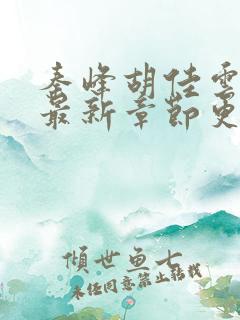 秦峰胡佳雲
最新章節更
傾世魚七
未經同意禁止轉載